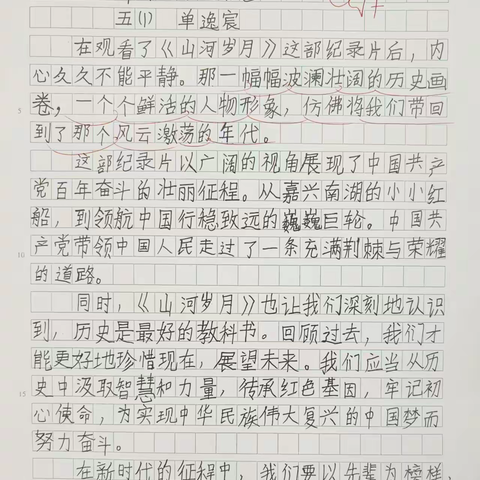 五(1) 单逸宸
在观看了《山河岁月》这部纪录片后，内
心久久不能平静。那一幅幅波澜壮阔的历史画
卷，一个个鲜活的人物形象，仿佛将我们带回
5
到了那个风云激荡的年代。
这部纪录片以广阔的视角展现了中国共产
党百年奋斗的壮丽征程。从嘉兴南湖的小小红
船，到领航中国行稳致远的巍巍巨轮。中国共
产党带领中国人民走过了一条充满荆棘与荣耀
10
的道路。
同时，《山河岁月》也让我们深刻地认识
到，历史是最好的教科书。回顾过去，我们才
能更好地珍惜现在，展望未来。我们应当从历
史中汲取智慧和力量，传承红色基因，牢记初
15
心使命，为实现中华民族伟大复兴的中国梦而
努力奋斗。
在新时代的征程中，我们要以先辈为榜样，